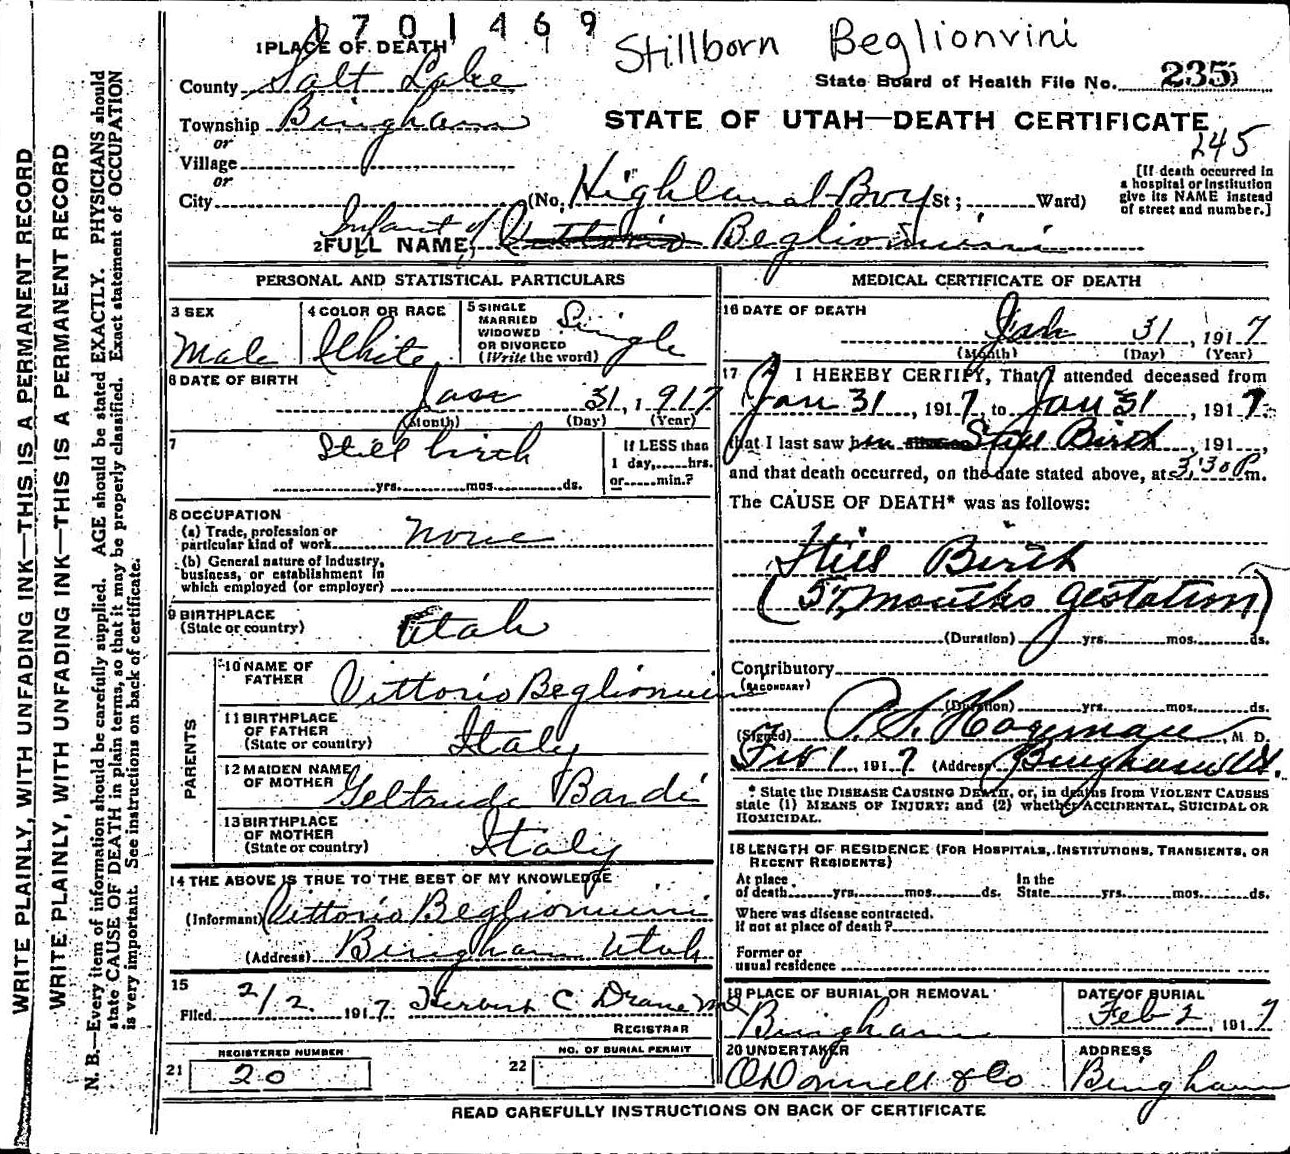 1701469
Stillborn Beglionvini
1 PLACE OF DEATH
State Board of Health File No. 235
County Salt Lake
STATE OF UTAH—DEATH CERTIFICATE
245
Township Bingham
or
Village
or
City (No. Highland Boy St; Ward)
[If death occurred in
a hospital or institution
give its NAME instead
of street and number.]
Infant of
2 FULL NAME Vittorio Beglionvini
PERSONAL AND STATISTICAL PARTICULARS
3 SEX
Male
4 COLOR OR RACE
White
5 SINGLE
MARRIED
WIDOWED
OR DIVORCED
(Write the word)
Single
6 DATE OF BIRTH
Jan 31, 1917
(Month) (Day) (Year)
7
Still birth
yrs. mos. ds.
If LESS than
1 day, hrs.
or min.?
8 OCCUPATION
(a) Trade, profession or
particular kind of work none
(b) General nature of Industry,
business, or establishment in
which employed (or employer)
9 BIRTHPLACE
(State or country)
Utah
PARENTS
10 NAME OF
FATHER
Vittorio Beglionvini
11 BIRTHPLACE
OF FATHER
(State or country)
Italy
12 MAIDEN NAME
OF MOTHER
Geltrude Bardi
13 BIRTHPLACE
OF MOTHER
(State or country)
Italy
14 THE ABOVE IS TRUE TO THE BEST OF MY KNOWLEDGE
(Informant) Vittorio Beglionvini
(Address) Bingham Utah
15
Filed 2/2 1917 Herbert C Drane MD
REGISTRAR
REGISTERED NUMBER
21 20
NO. OF BURIAL PERMIT
22
MEDICAL CERTIFICATE OF DEATH
16 DATE OF DEATH
Jan 31, 1917
(Month) (Day) (Year)
17 I HEREBY CERTIFY, That I attended deceased from
Jan 31, 1917, to Jan 31, 1917
that I last saw him Still Birth, 191
and that death occurred, on the date stated above, at 3:30 P m.
The CAUSE OF DEATH* was as follows:
Still Birth
(5½ months gestation)
(Duration) yrs. mos. ds.
Contributory
(SECONDARY)
(Duration) yrs. mos. ds.
(Signed) M. D.
Feb 1, 1917 (Address) Bingham Ut.
* State the DISEASE CAUSING DEATH, or, in deaths from VIOLENT CAUSES
state (1) MEANS OF INJURY; and (2) whether ACCIDENTAL, SUICIDAL OR
HOMICIDAL.
18 LENGTH OF RESIDENCE (FOR HOSPITALS, INSTITUTIONS, TRANSIENTS, OR
RECENT RESIDENTS)
At place
of death yrs. mos. ds.
In the
State yrs. mos. ds.
Where was disease contracted.
If not at place of death?
Former or
usual residence
19 PLACE OF BURIAL OR REMOVAL
Bingham
DATE OF BURIAL
Feb 2, 1917
20 UNDERTAKER
O'Donnell & Co
ADDRESS
Bingham
READ CAREFULLY INSTRUCTIONS ON BACK OF CERTIFICATE
WRITE PLAINLY, WITH UNFADING INK—THIS IS A PERMANENT RECORD
WRITE PLAINLY, WITH UNFADING INK—THIS IS A PERMANENT RECORD
N. B.—Every item of information should be carefully supplied. AGE should be stated EXACTLY. PHYSICIANS should
state CAUSE OF DEATH in plain terms, so that it may be properly classified. Exact statement of OCCUPATION
is very important. See instructions on back of certificate.